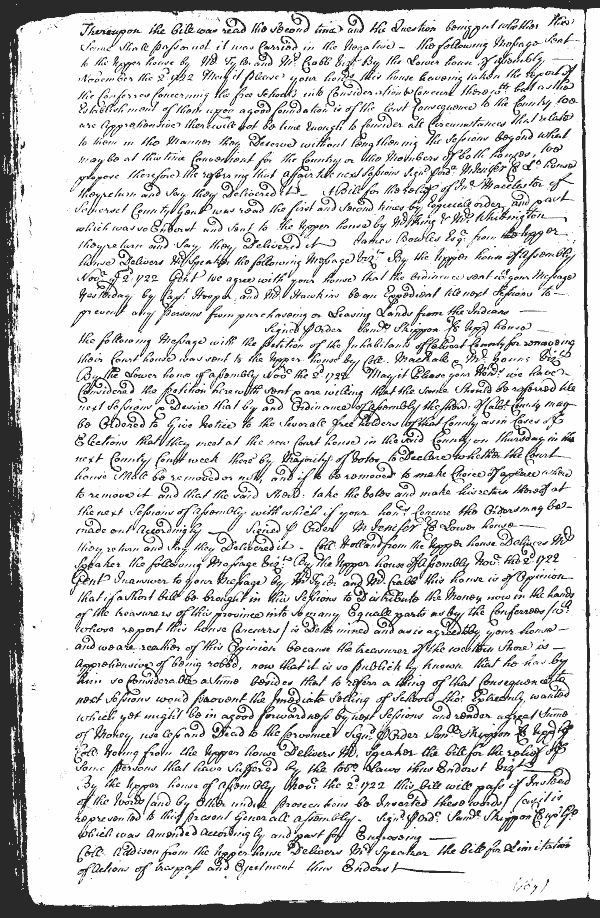 Thereupon the bill was read the second time and the Question being put whether the
Same Shall pass or not it was Carried in the Negative - the following Message Sent
to the upper house by Mr. Tyler and Mr. Crabb Esqr. By the Lower house of Assembly
November the 2d 1722 May it please your honrs this house haveing taken the report of
the Conferrees concerning the free Schools into Consideration & Concurr therewth but as the
Establishment of them upon a good foundation is of the last Consequence to the Country wee
are Apprehensive there will not be time enough to Consider all Circumstances that relate
to them in the Manner they Deserve without lengthening the Sessions beyond what
may be at this time Convenient for the Country or the Members of both houses, wee
propose therefore the referring that affair till next Sessions Signd pr order M Jenifer Cl Lo: house
they return and Say they Delivered it - A bill for the relief of Macclaster of
Somerset County Gent was read the first and Second times by Especiall order, and past
which was so Endorst and Sent to the upper house by Mr. King & Mr. Whittington
they return and Say they Delivered it James Bowles Esqr. from the upper
house Delivers Mr. Speaker the following Message Vizt. By the Upper house of Assembly
Novr. ye 2d 1722 Gent we agree with your house that the ordinance sent in your Message
Yesterday by Capt. Hooper, and Mr. Hawkins be an Expedient till next Sessions to
prevent any Persons from purchaseing or Leaseing Lands from the Indians
Signed pr Order Saml. Skippon Cl uppr house
the following Message with the petition of the Inhabitants of Calvert County for removeing
their Court house was sent to the upper house by Coll. Mackall & Mr. Young Vizt.
By the Lower house of Assembly Novr. the 2d 1722 May it Please your Honrs. we have
Considered the petition herewith sent & are willing that the Same Should be referred till
next Sessions & Desire that by and Ordinance of Assembly the Sherd. of Calvt. County may
be Ordered to Give Notice to the Severall free holders of that County as in Cases of
Elections that they meet at the new Court house in the said County on thursday in the
next County Court week there by Majority of Votes to Declare whether the Court
house Shall be removed or not, and if to be removed to make Choice of a place where
to remove it and that the said Sherd. take the votes and make his return thereof at
the next Sessions of Assembly with which if your honrs Concurr the Orders may be
made out Accordingly Signed pr Order M Jenifer Cl Lower house
they return and Say they Delivered it - Coll. Holland from the upper house Delivers Mr.
Speaker the following Message Vizt. By the Upper house of Assembly Novr. the 2d 1722
Gent In answer to your Message by Mr. Tyler and Mr. Crabb this house is of Opinion
that if a Short bill be brought in this Sessions to Distribute the Money now in the hands
of the treasurers of this province into so many Equall parts as by the Conferrees (to
whose report this house Concurrs) is determined and as is agreed by your house
and we are rather of this Opinion because the treasurer of the western Shore is
Apprehensive of being robed, now that it is so publickly known that he has by
him so Considerable a time besides that to referr a thing of that Consequence to
next Sessions would prevent the imediate Setling of Schools tho' Extreamly wanted
which yet might be in a good forwardness by next Sessions and render a great Summe
of Money useless and Dead to the province Signd pr Order Saml. Skippon Cl Uppr ho
Coll. Young from the Upper house Delivers Mr. Speaker the bill for the relief of
Some persons that have Suffered by the Tobo. Laws thus Endorst Vizt.
By the Upper house of Assembly Novr. the 2d 1722 this bill will pass if Instead
of the words (and by other undue prosecutions be Inserted these words (as it is
represented to this present Generall Assembly. Signd pr Ordr. Saml. Skippon Cl Upr ho
which was Amended Accordingly and past for Engrossing
Coll. Addison from the Upper house Delivers Mr. Speaker the bill for Limitation
of Actions of trespass and Ejectment thus Endorst